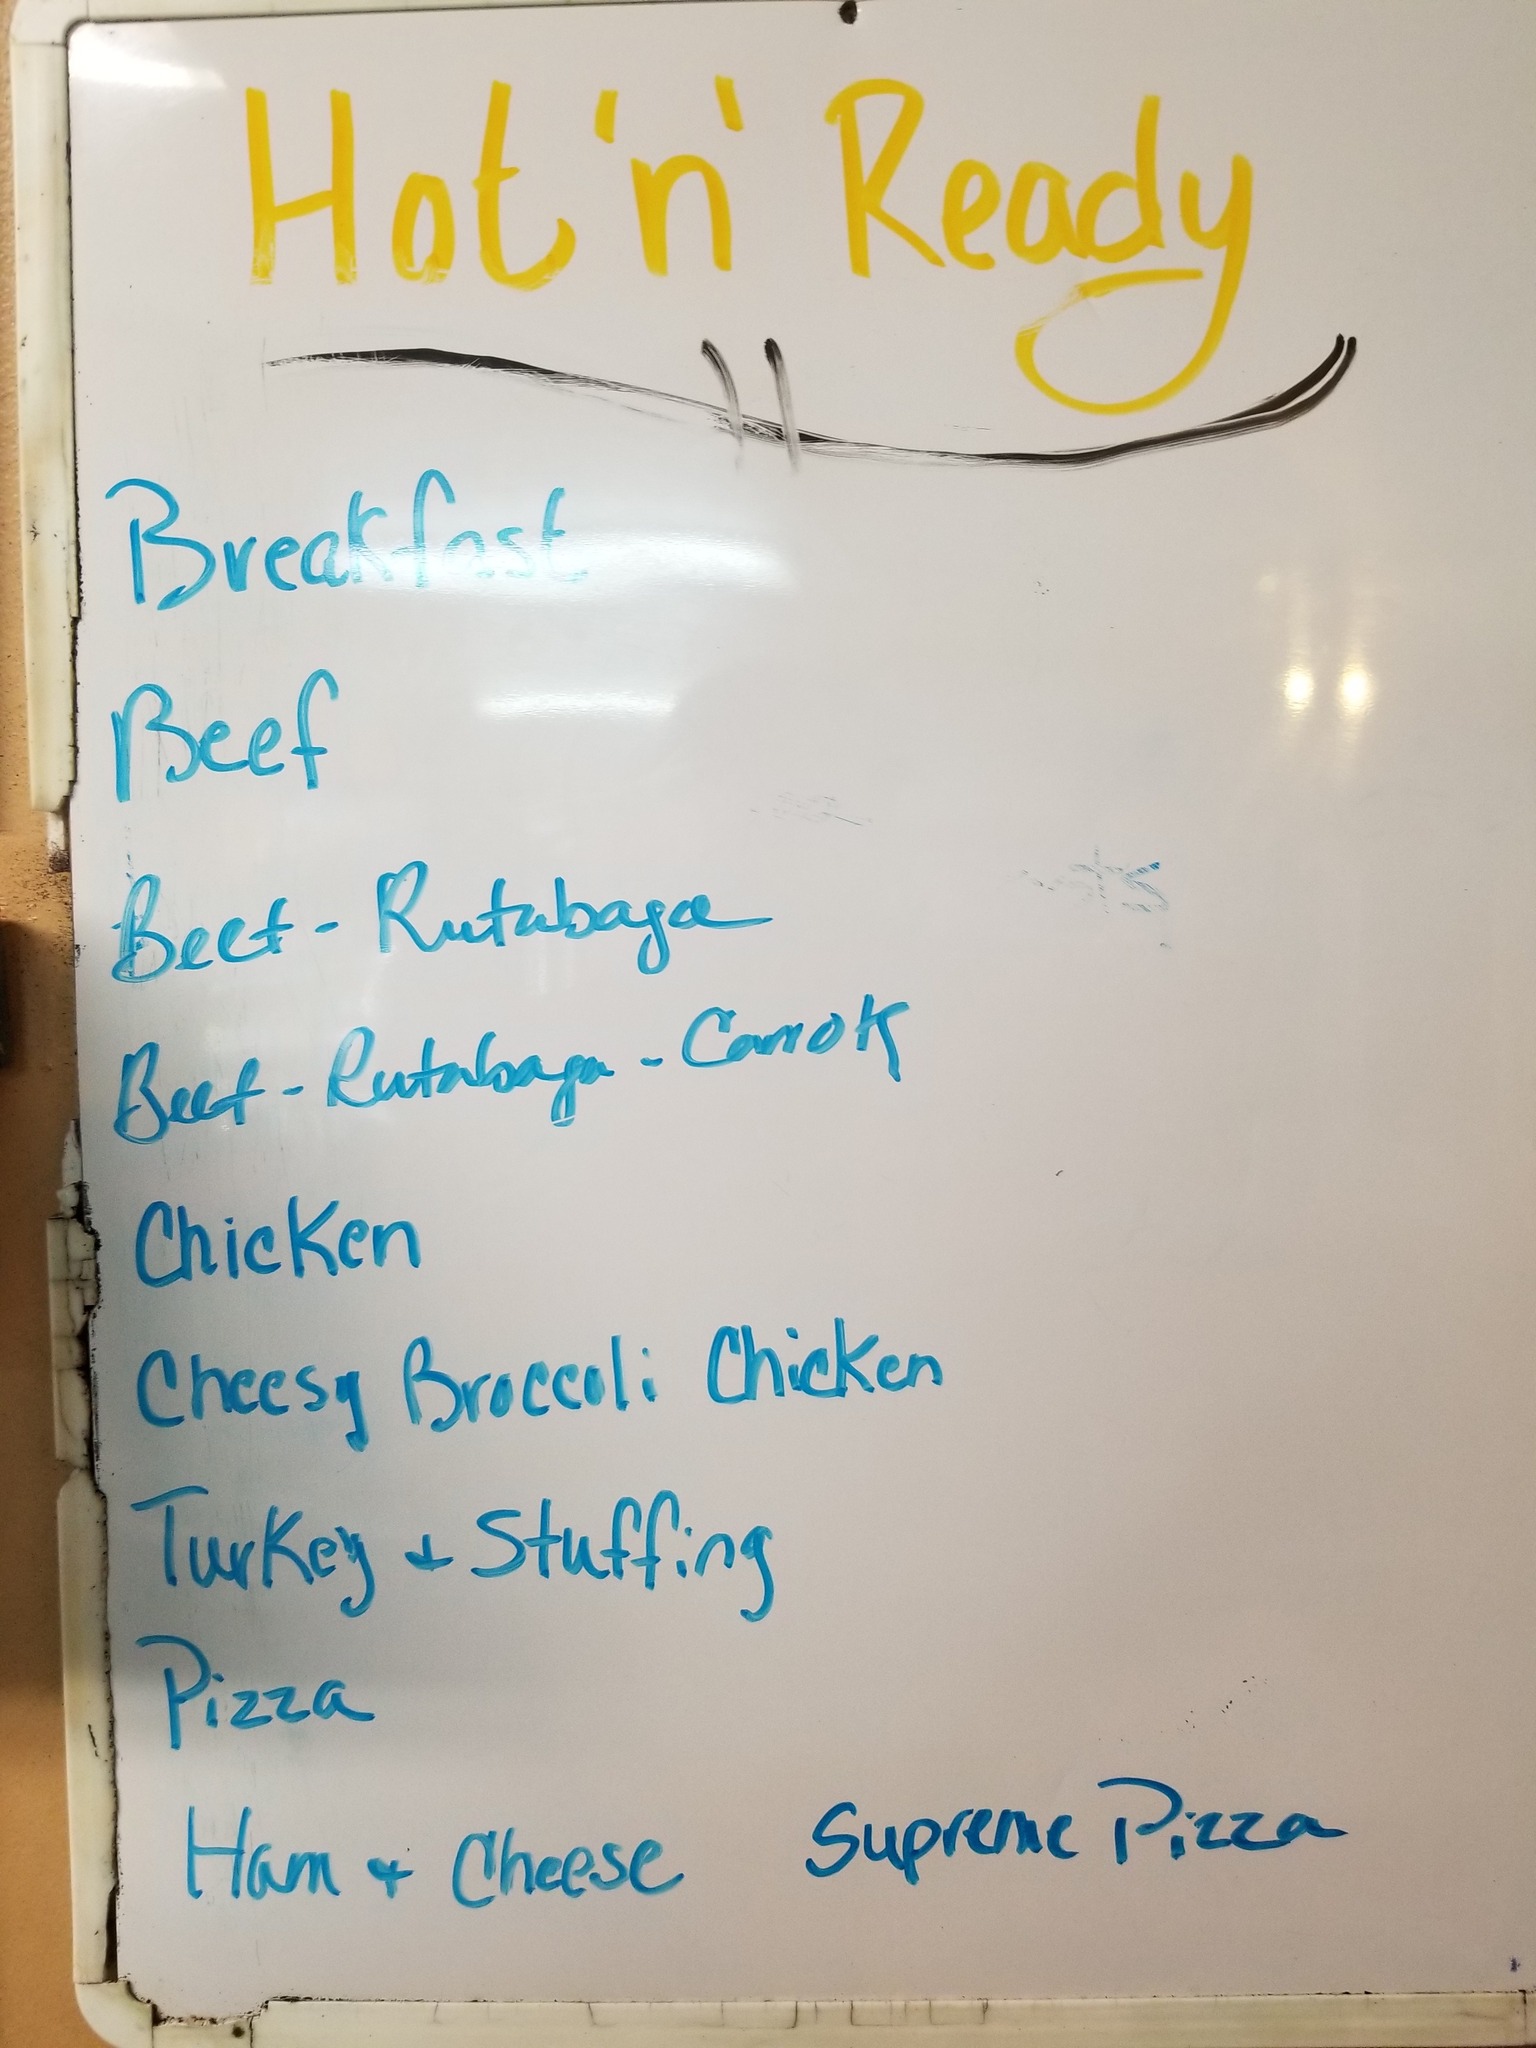 Hot 'n' Ready
Breakfast
Beef
Beef - Rutabaga
Beef - Rutabaga - Carrot
Chicken
Cheesy Broccoli Chicken
Turkey & Stuffing
Pizza
Ham & Cheese Supreme Pizza